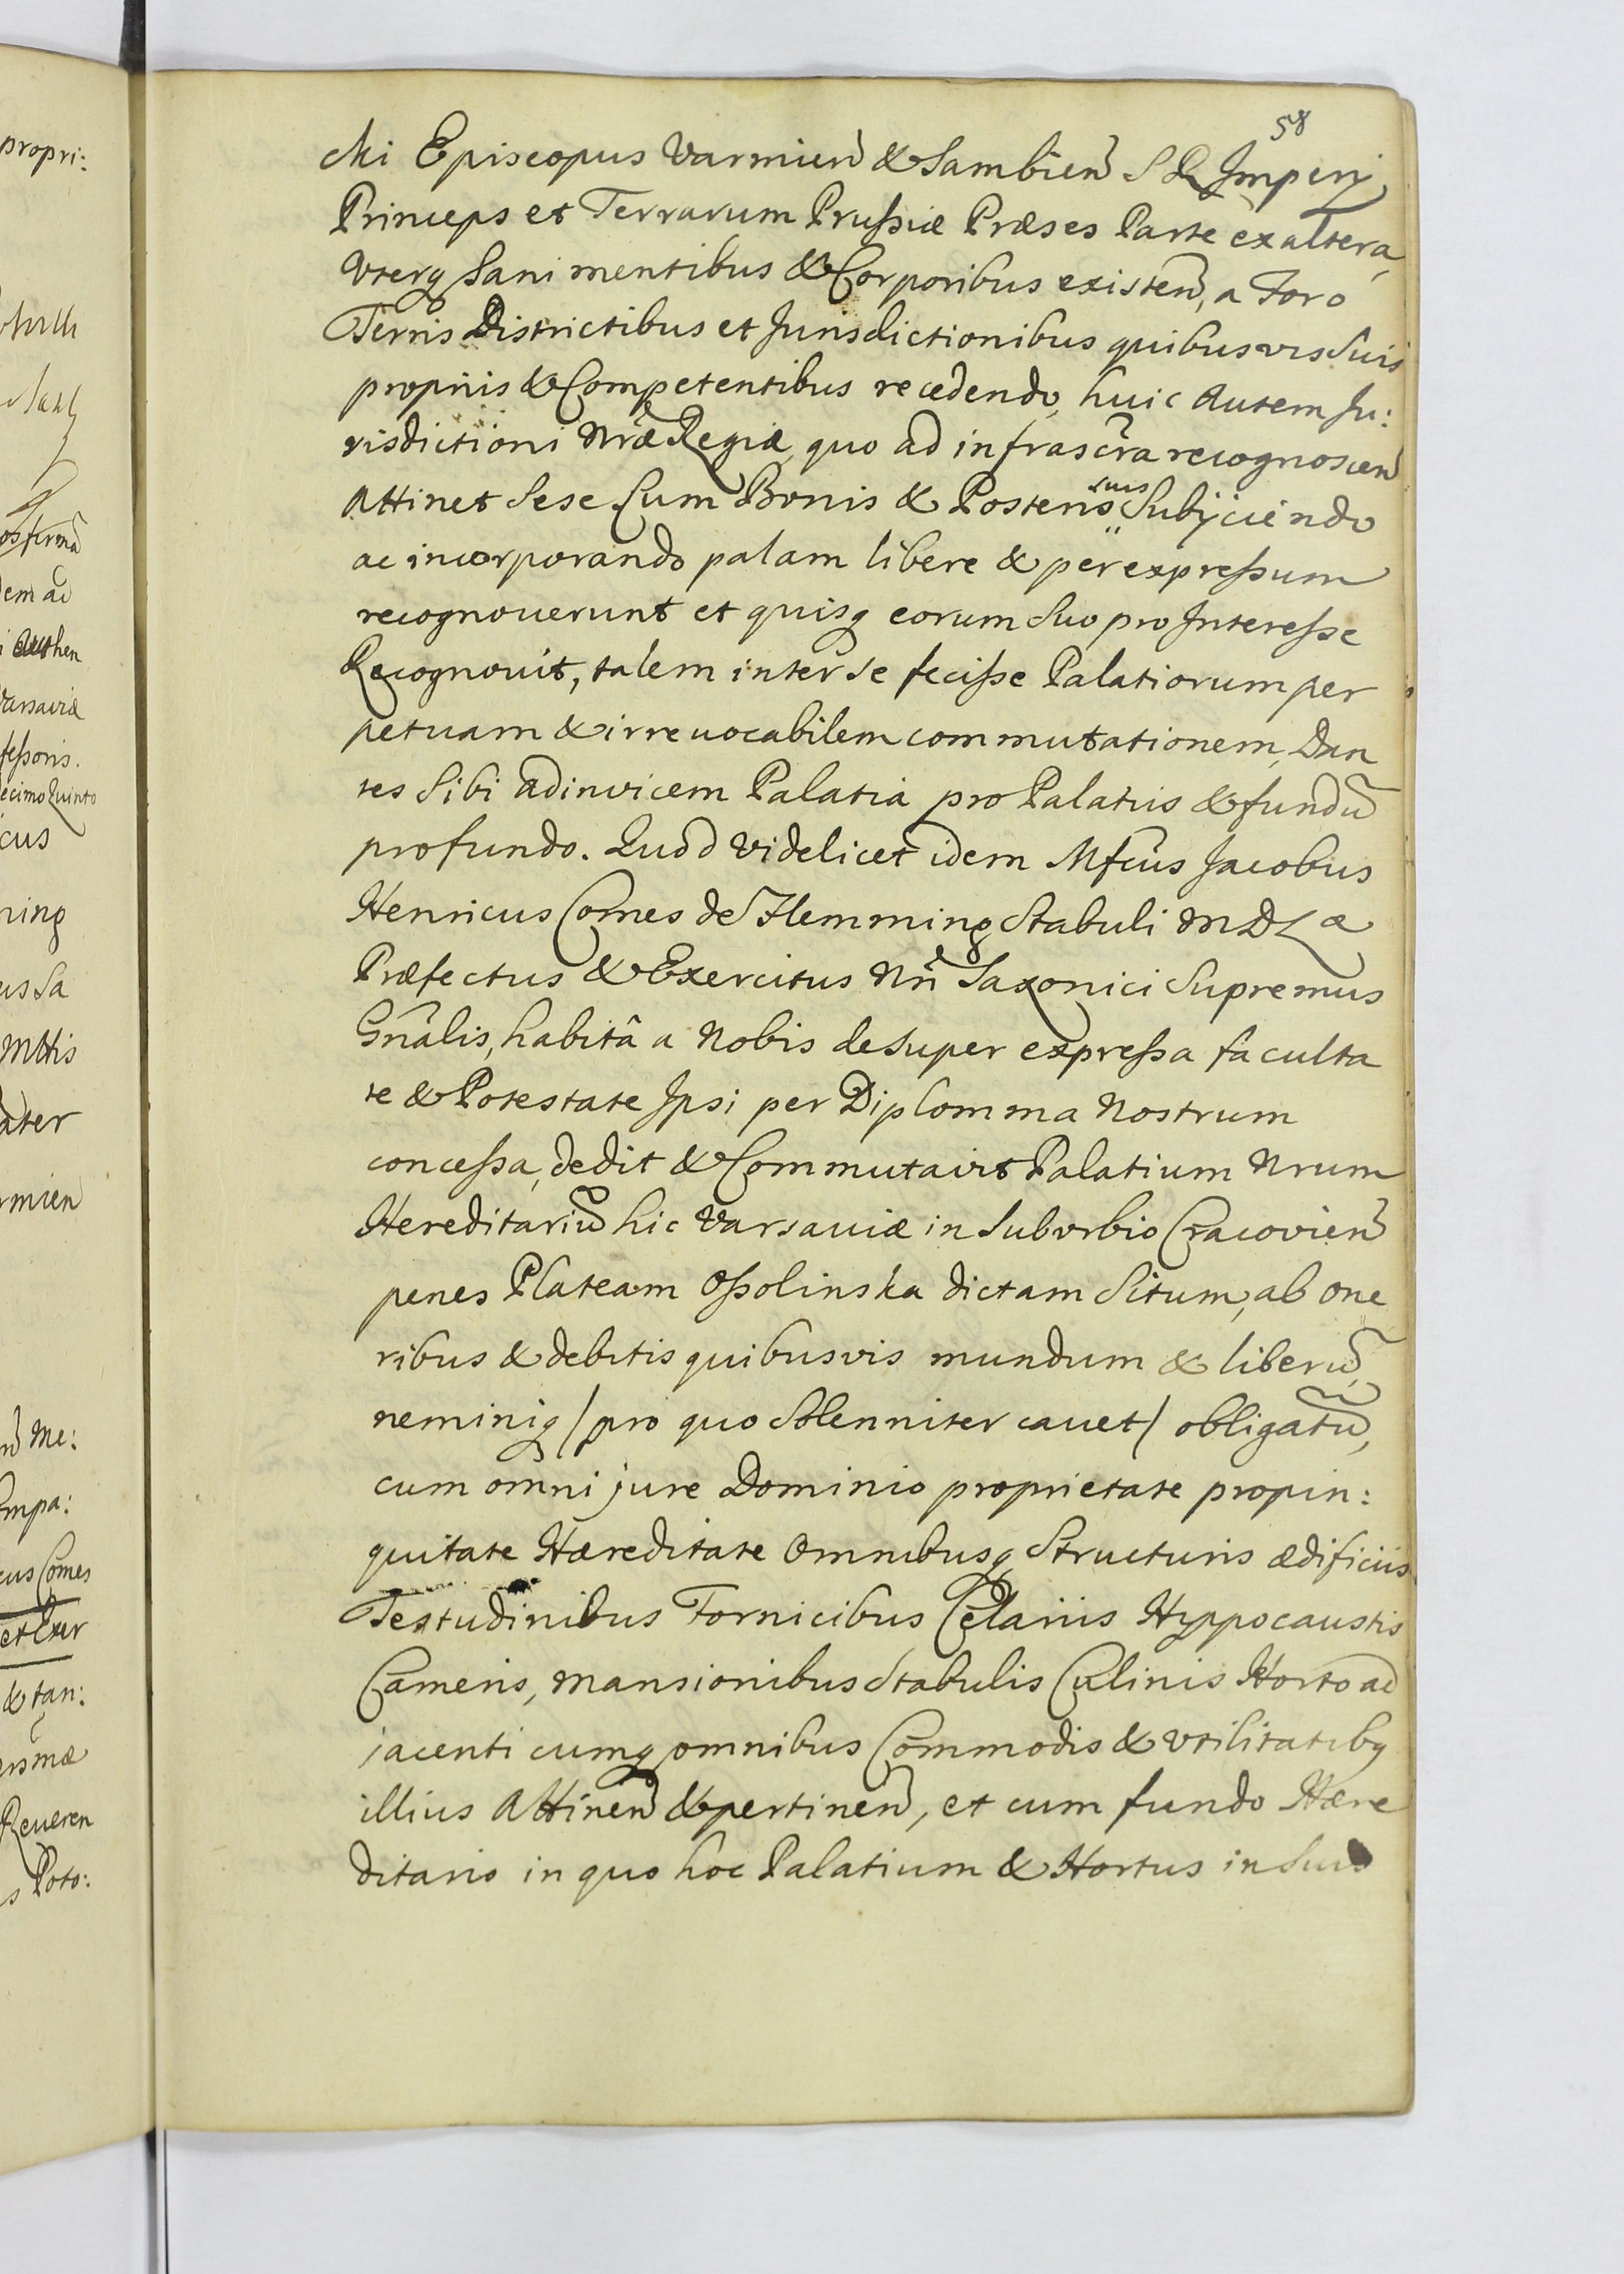 58
cki Episcopus Varmien & Sambien S R Imperij
Princeps et Terrarum Prussiæ Præses Parte ex altera,
Vterq Sani mentibus & Corporibus existen, a Foro
Terris Districtibus et Jurisdictionibus quibusvis Suis
proprijs & Competentibus recedendo, huic autem Ju:
risdictioni Nræ Regiæ, quo ad infrascra recognoscen
Attinet Sese Cum Bonis & Posteris suis Subijciendo
ac incorporando palam libere & per expressum
recognouerunt et quisq eorum Suo pro Interesse
Recognouit, talem inter se fecisse Palatiorum per
petuam & irreuocabilem commutationem, Dan
tes Sibi adinvicem Palatia pro Palatiis & fundũ
pro fundo. Quod videlicet idem Mfcus Jacobus
Henricus Comes de Flemming Stabuli M D L æ
Præfectus & Exercitus Nri Saxonici Supremus
Gnâlis, habitâ a Nobis desuper expressa faculta
te & Potestate Ipsi per Diplomma Nostrum
concessa, dedit & Commutavit Palatium Nrum
Hereditariũ hic Varsauiæ in Suburbio Cracovien
penes Plateam Ossolinska dictam Situm, ab one
ribus & debitis quibusvis mundum & liberũ,
neminiq /pro quo Solenniter cauet/ obligatũ,
cum omni jure Dominio proprietate propin:
quitate Hæreditate Omnibusq Structuris ædificiis
Testudinibus Fornicibus Celariis Hyppocaustis
Cameris, mansionibus Stabulis Culinis Horto ad
jacenti cumq omnibus Commodis & vtilitatibq
illius Attinen & pertinen, et cum fundo Hære
ditario in quo hoc Palatium & Hortus in Suis
propri:
dem ac
Varsauiæ
fessoris.
ecimo Quinto
cus
ning
us Sa
Mttis
ater
rmien
Me:
Empa:
cus Comes
et Exer
& tan:
Reueren
s Poto: